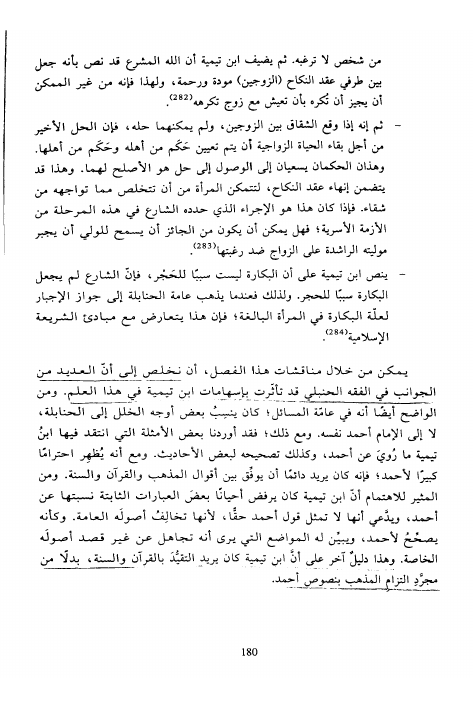 من شخص لا ترغبه. ثم يضيف ابن تيمية أن الله المشرع قد نص بأنه جعل
بين طرفي عقد النكاح (الزوجين) مودة ورحمة، ولهذا فإنه من غير الممكن
أن يجيز أن تُكره بأن تعيش مع زوج تكرهه(282).
– ثم إنه إذا وقع الشقاق بين الزوجين، ولم يمكنهما حله، فإن الحل الأخير
من أجل بقاء الحياة الزواجية أن يتم تعيين حَكَم من أهله وحَكَم من أهلها.
وهذان الحكمان يسعيان إلى الوصول إلى حل هو الأصلح لهما. وهذا قد
يتضمن إنهاء عقد النكاح، لتتمكن المرأة من أن تتخلص مما تواجهه من
شقاء. فإذا كان هذا هو الإجراء الذي حدده الشارع في هذه المرحلة من
الأزمة الأسرية؛ فهل يمكن أن يكون من الجائز أن يسمح للولي أن يجبر
موليته الراشدة على الزواج ضد رغبتها(283).
– ينص ابن تيمية على أن البكارة ليست سببًا للحَجْر، فإنّ الشارع لم يجعل
البكارة سببًا للحجر. ولذلك فعندما يذهب عامة الحنابلة إلى جواز الإجبار
لعلّة البكارة في المرأة البالغة؛ فإن هذا يتعارض مع مبادئ الشريعة
الإسلامية(284).
يمكن من خلال مناقشات هذا الفصل، أن نخلص إلى أنّ العديد من
الجوانب في الفقه الحنبلي قد تأثّرت بإسهامات ابن تيمية في هذا العلم. ومن
الواضح أيضًا أنه في عامّة المسائل؛ كان ينسِبُ بعض أوجه الخلل إلى الحنابلة،
لا إلى الإمام أحمد نفسه. ومع ذلك؛ فقد أوردنا بعض الأمثلة التي انتقد فيها ابنُ
تيمية ما رُويَ عن أحمد، وكذلك تصحيحه لبعض الأحاديث. ومع أنه يُظهِر احترامًا
كبيرًا لأحمد؛ فإنه كان يريد دائمًا أن يوفّق بين أقوال المذهب والقرآن والسنة. ومن
المثير للاهتمام أنّ ابن تيمية كان يرفض أحيانًا بعضَ العبارات الثابتة نسبتها عن
أحمد، ويدَّعي أنها لا تمثل قول أحمد حقًّا، لأنها تخالِفُ أصولَه العامة. وكأنه
يصحّحُ لأحمد، ويبيِّن له المواضع التي يرى أنه تجاهل عن غير قصد أصولَه
الخاصة. وهذا دليلٌ آخر على أنَّ ابن تيمية كان يريد التقيُّدَ بالقرآن والسنة، بدلًا من
مجرَّدِ التزام المذهب بنصوص أحمد.
180